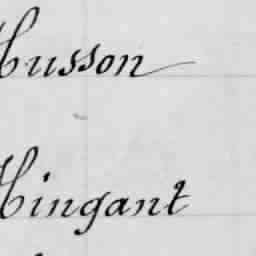 Husson
Hingant